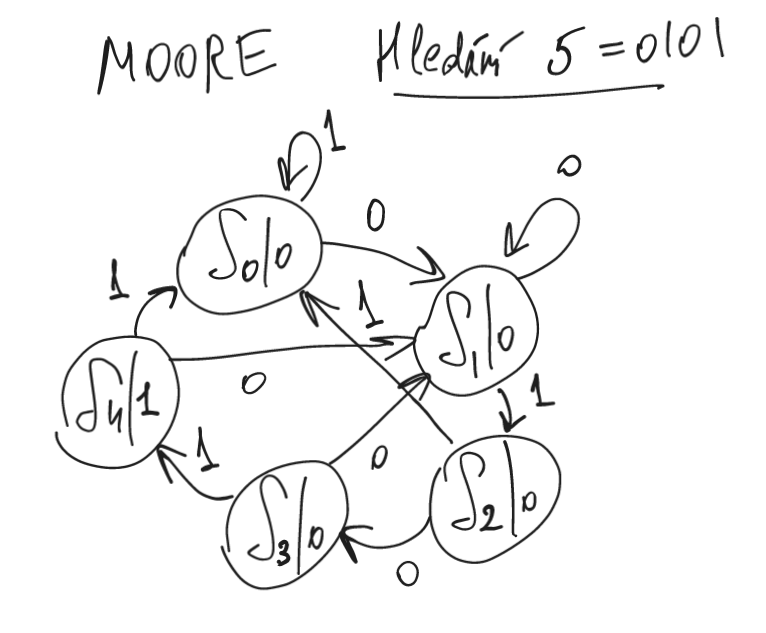 MOORE Hledání 5 = 0101
1
0
0
S0|0
1
1
S1|0
0
S4|1
1
1
0
S2|0
S3|0
0